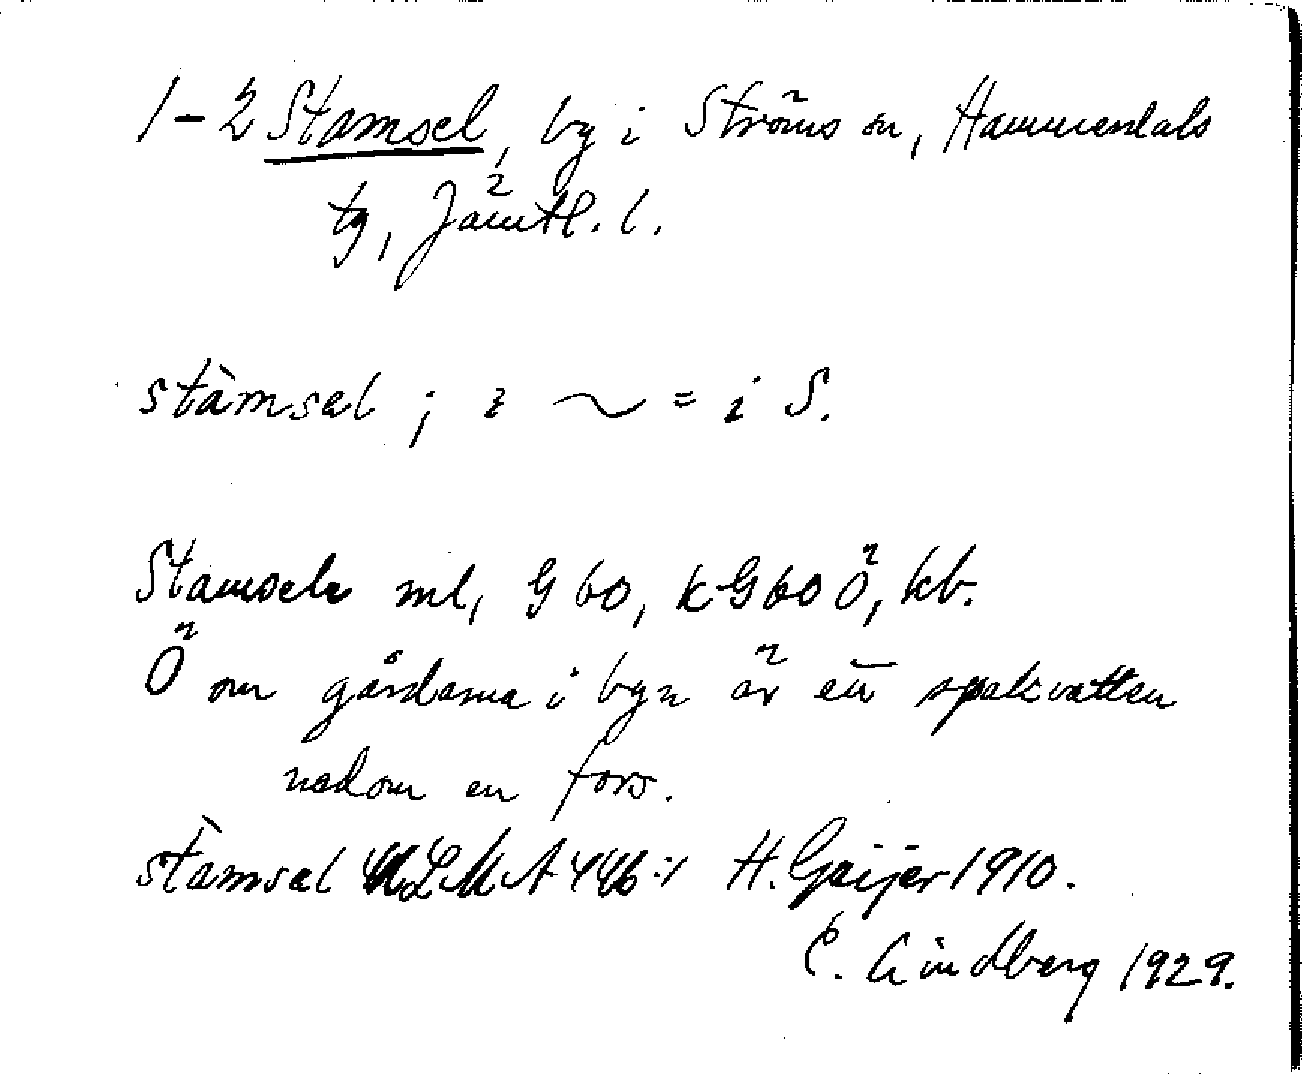 1-2 Stamsel, by i Ströms sn, Hammerdals
tg, Jämtl. l.
stàmsel ; i ~ = i S.
Stamsele ml, G 60, kG60 Ö, kb.
Ö om gårdarna i byn är ett spakvatten
nedom en fors.
stàmsel ULMA 446:1 H. Geijer 1910.
E. Lindberg 1929.